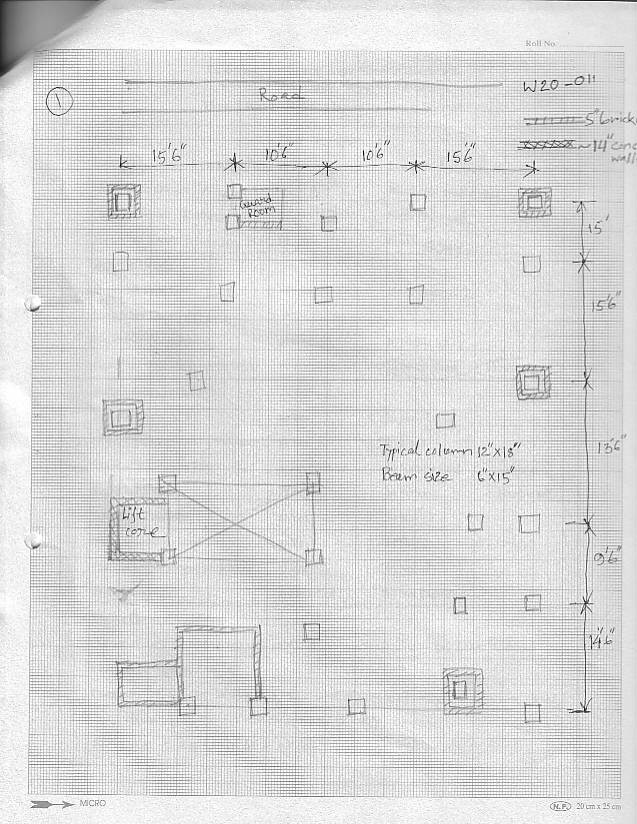 Roll No.
W20-011
①
Road
5" brick
~14" conc
walls
15'6" 10'6" 10'6" 15'6"
Guard
Room
15'
15'6"
13'6"
Typical column 12"X18"
Beam size 6"X15"
Lift
core
9'6"
14'6"
MICRO
N.P. 20 cm x 25 cm